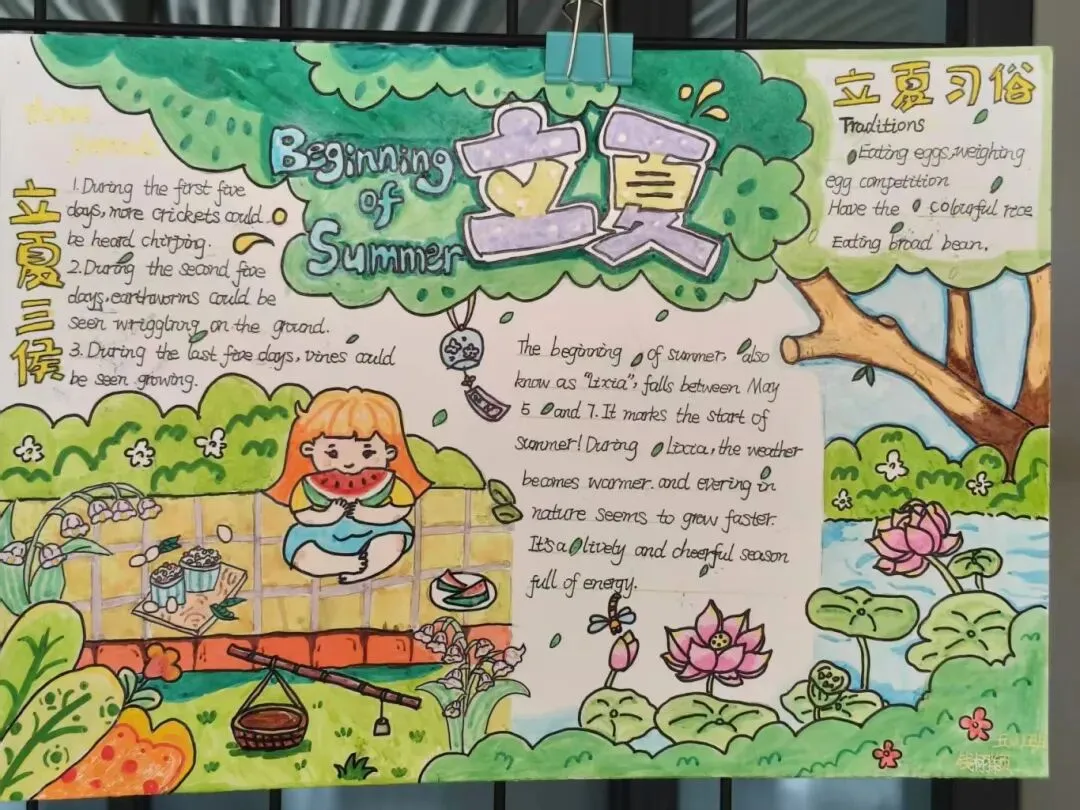 Beginning
of
Summer
立夏
立夏三候
1. During the first five
days, more crickets could
be heard chirping.
2. During the second five
days, earthworms could be
seen wriggling on the ground.
3. During the last five days, vines could
be seen growing.
The beginning of summer, also
know as "Lixia", falls between May
5 and 7. It marks the start of
summer! During Lixia, the weather
becomes warmer. and evering in
nature seems to grow faster.
It's a lively and cheerful season
full of energy.
立夏习俗
Traditions
Eating eggs, weighing
egg competition
Have the colourful rice
Eating broad bean.